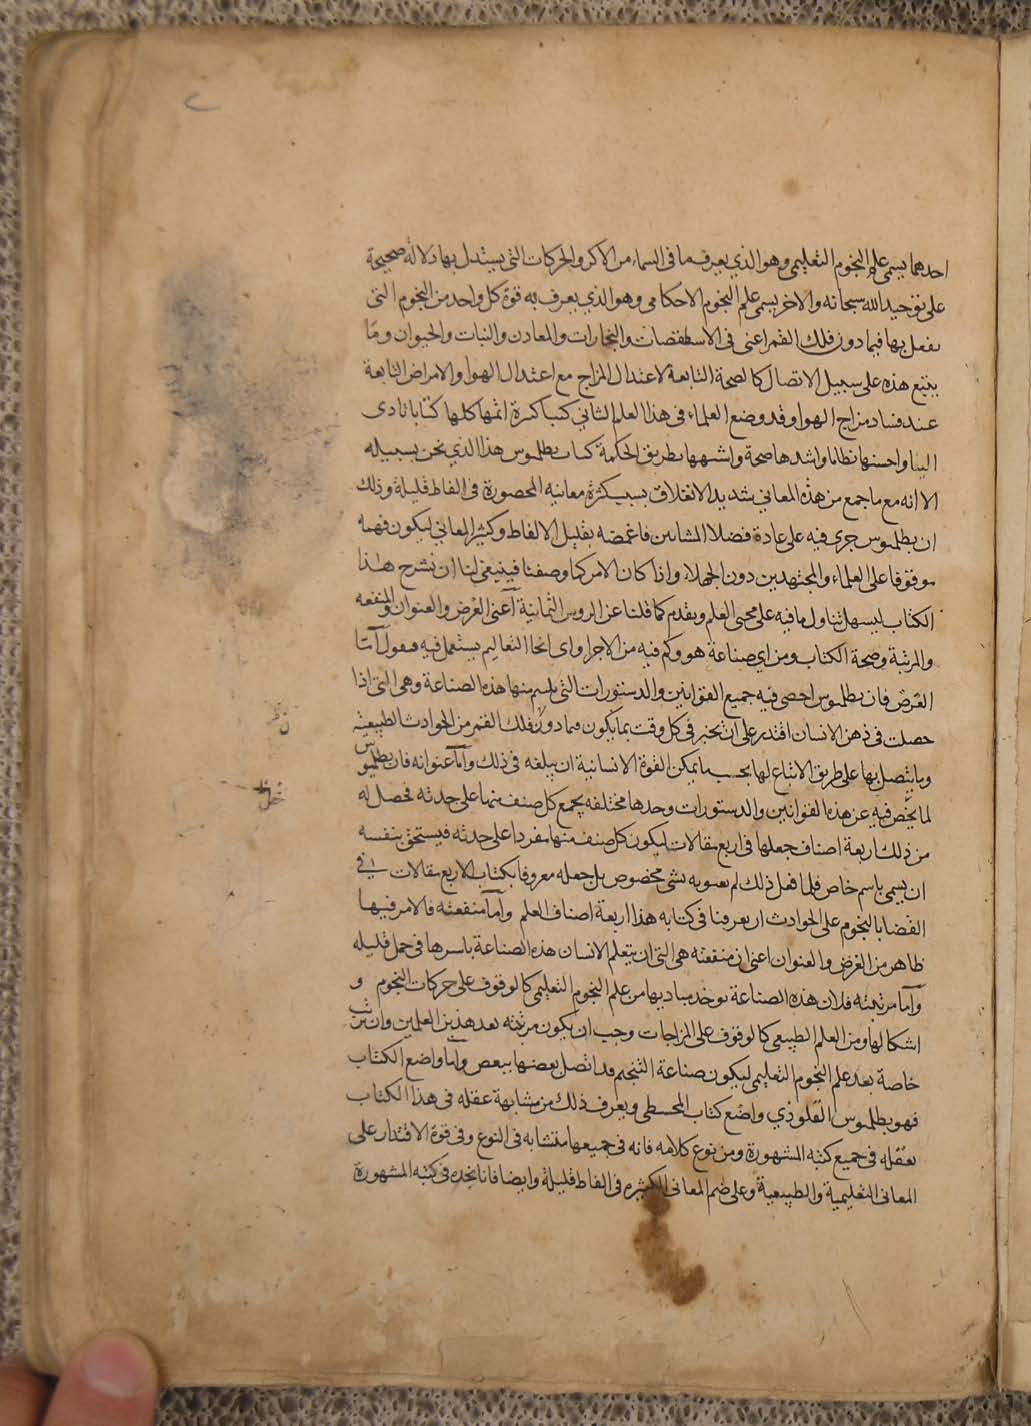 احدهما يسمى علم النجوم التعليمى وهو الذي يعرف ما فى السماء من الاكر والحركات التى يستدل بها دلالة صحيحة
على توحيد الله سبحانه والاخر يسمى علم النجوم الاحكامى وهو الذي يعرف به قوة كل واحد من النجوم التى
تفعل بها فيما دون فلك القمر اعنى فى الاسطقصات والبخارات والمعادن والنبات والحيوان وما
يتبع هذه على سبيل الاتصال كالصحة التابعة لاعتدال المزاج مع اعتدال الهوا والامراض التابعة
عند فساد مزاج الهوا وقد وضع العلماء فى هذا العلم الثانى كتبا كثيرة اتمها كلها كتابا تادى
الينا واحسنها نظاما واشدها صحة واشبهها بطريق الحكمة كتاب بطلموس هذا الذي نحن بسبيله
الا انه مع ما جمع من هذه المعاني شديد الانغلاق بسبب كثرة معانيه المحصورة فى الفاظ قليلة وذلك
ان بطلموس جرى فيه على عادة فضلا المشائين فاغمضه بقليل الالفاظ وكثير المعانى ليكون فهمه
موقوفا على العلماء والمجتهدين دون الجهلاء واذا كان الامر كما وصفنا فينبغى لنا ان نشرح هذا
الكتاب ليسهل تناول ما فيه على محبى العلم ونقدم كما قلنا عن الروس الثمانية اعنى الغرض والعنوان والمنفعه
والمرتبة وصحة الكتاب ومن اي صناعة هو وكم فيه من الاجزا واى انحا التعاليم يستعمل فيه فنقول اما
الغرض فان بطلموس احصى فيه جميع القوانين والدستورات التى يلتئم منها هذه الصناعة وهى التى اذا
حصلت فى ذهن الانسان اقتدر على ان يخبر فى كل وقت بما يكون فيما دون فلك القمر من الحوادث الطبيعية
وما يتصل بها على طريق الاتباع لها بحسب ما يمكن القوة الانسانية ان يبلغه فى ذلك واما عنوانه فان بطلموس
لما فحص فيه عن هذه القوانين والدستورات وحدها مختلفه يجمع كل صنف منها على حدته فحصل له
من ذلك اربعة اصناف جعلها فى اربع مقالات ليكون كل صنف منها مفردا على حدته فيستحق بنفسه
ان يسمى باسم خاص فلما فعل ذلك لم يعنونه بشى مخصوص بل جعله معروفا بكتاب الاربع مقالات فى
القضايا بالنجوم على الحوادث اربعة اصناف العلم واما منفعته فالامر فيها
ظاهر من الغرض والعنوان اعنى ان منفعته هى التى ان يتعلم الانسان هذه الصناعة باسرها فى جمل قليله
واما مرتبته فلان هذه الصناعة توخذ مباديها من علم النجوم التعليمى كالوقوف على حركات النجوم و
اشكالها ومن العلم الطبيعى كالوقوف على المزاجات وجب ان يكون مرتبته بعد هذين العلمين وان يرتب
خاصة بعد علم النجوم التعليمى ليكون صناعة التنجيم قد اتصل بعضها ببعض واما واضع الكتاب
فهو بطلموس القلوذي واضع كتاب المجسطى ويعرف ذلك من مشابهة عقله فى هذا الكتاب
بعقله فى جميع كتبه المشهورة ومن نوع كلامه فانه فى جميعها متشابه فى النوع وفى قوة الاقتدار على
المعانى التعليمية والطبيعية وعلى ضم المعانى الكثيره فى الفاظ قليلة وايضا فانا نجده فى كتبه المشهورة